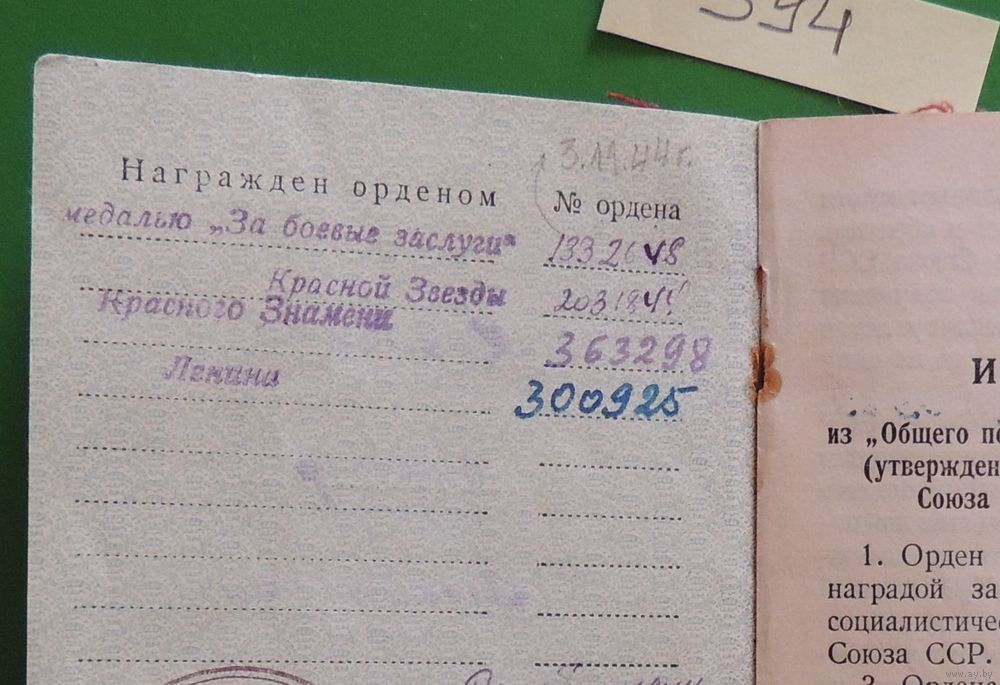 594
3.11.44 г.
Награжден орденом № ордена
медалью „За боевые заслуги“ 1332648
Красной Звезды
Красного Знамени 363298
Ленина 300925
И
из „Общего по
(утвержден
Союза
1. Орден
наградой за
социалистичес
Союза ССР.
www.ay.by